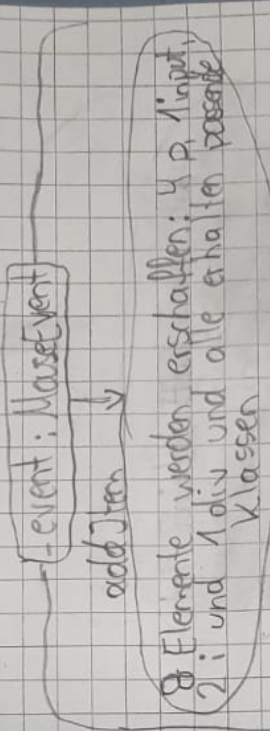 _event: MouseEvent
addItem
8 Elemente werden erschaffen: 4 p, 1 input,
2 i und 1 div und alle erhalten passende
Klassen